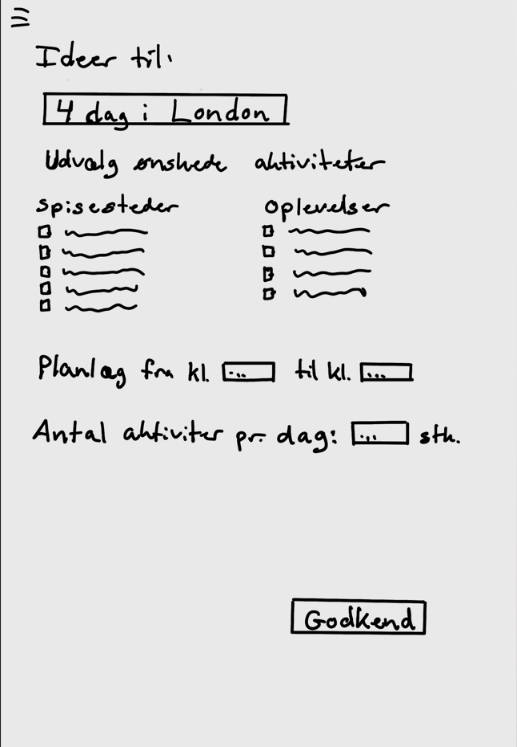 Ideer til:
4 dag i London
Udvælg ønskede aktiviteter
Spisesteder
Oplevelser
Planlæg fra kl. ... til kl. ...
Antal aktiviter pr. dag: ... stk.
Godkend